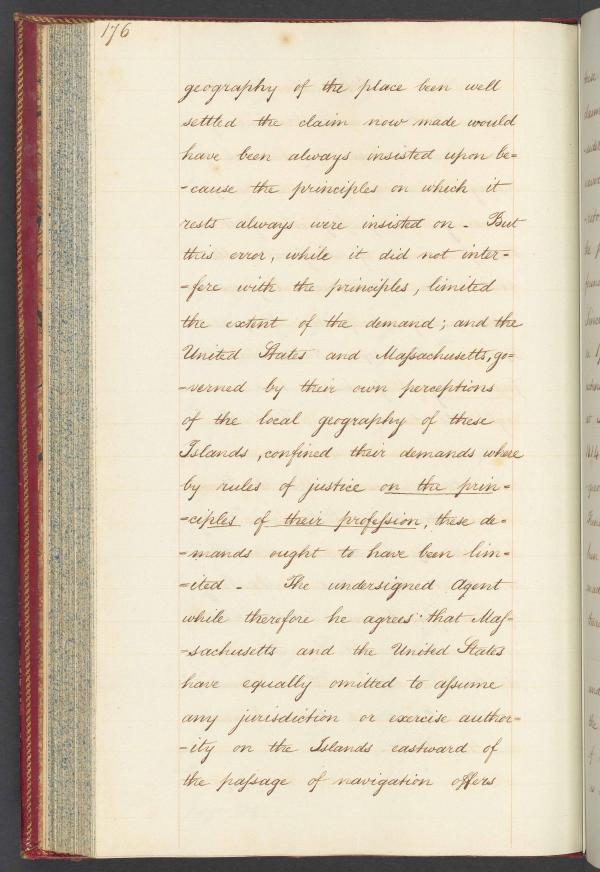 176
geography of the place been well
settled the claim now made would
have been always insisted upon be=
=cause the principles on which it
rests always were insisted on - But
this error, while it did not inter-
-fere with the principles, limited
the extent of the demand; and the
United States and Maſsachusetts, go=
-verned by their own perceptions
of the local geography of these
Islands, confined their demands where
by rules of justice on the prin-
-ciples of their profeſsion, these de-
-mands ought to have been lim-
-ited - The undersigned Agent
while therefore he agrees that Maſ-
-sachusetts and the United States
have equally omitted to aſsume
any jurisdiction or exercise author-
-ity on the Islands eastward of
the paſsage of navigation offers